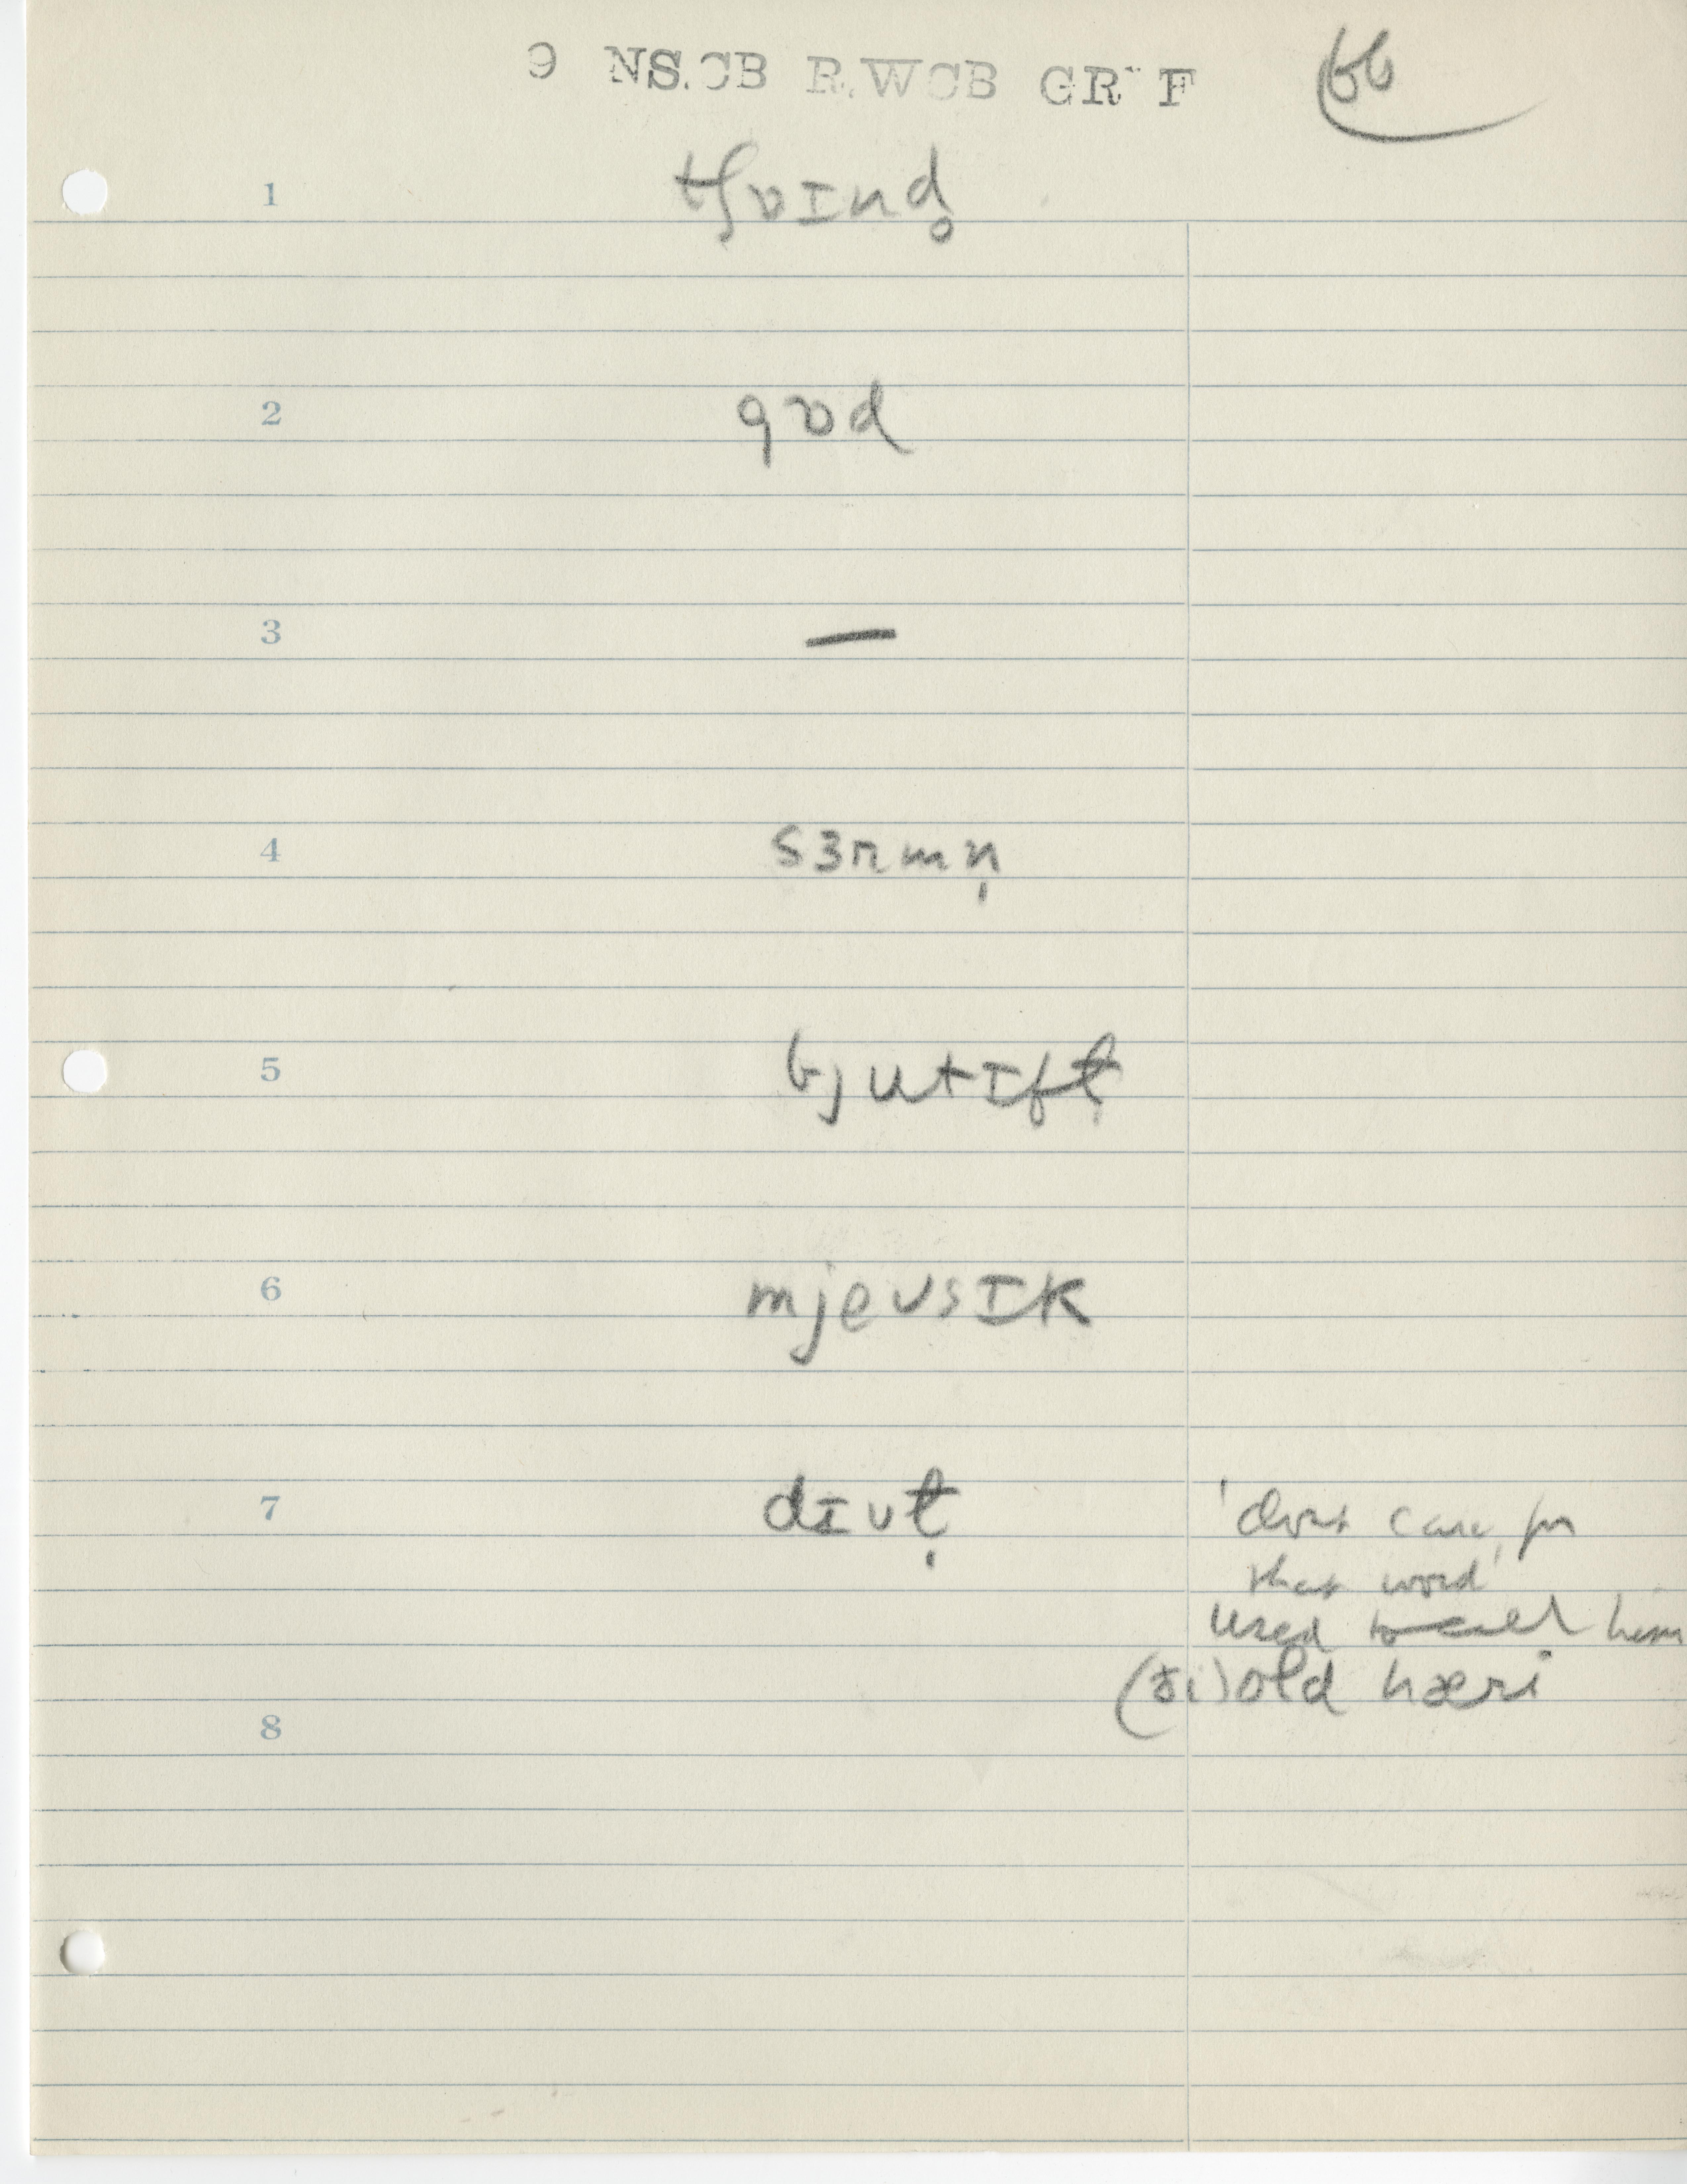 9 NS.CB R.WCB GR F 66
1 tʃɒɪnd̥
2 gɒd
3 —
4 sɜrmn̩
5 bjutɪfɫ̩
6 mjeʊsɪk
7 dɪʊɫ̩ 'don't care for
that word'
used to call him
(ðɪ) old hæri
8